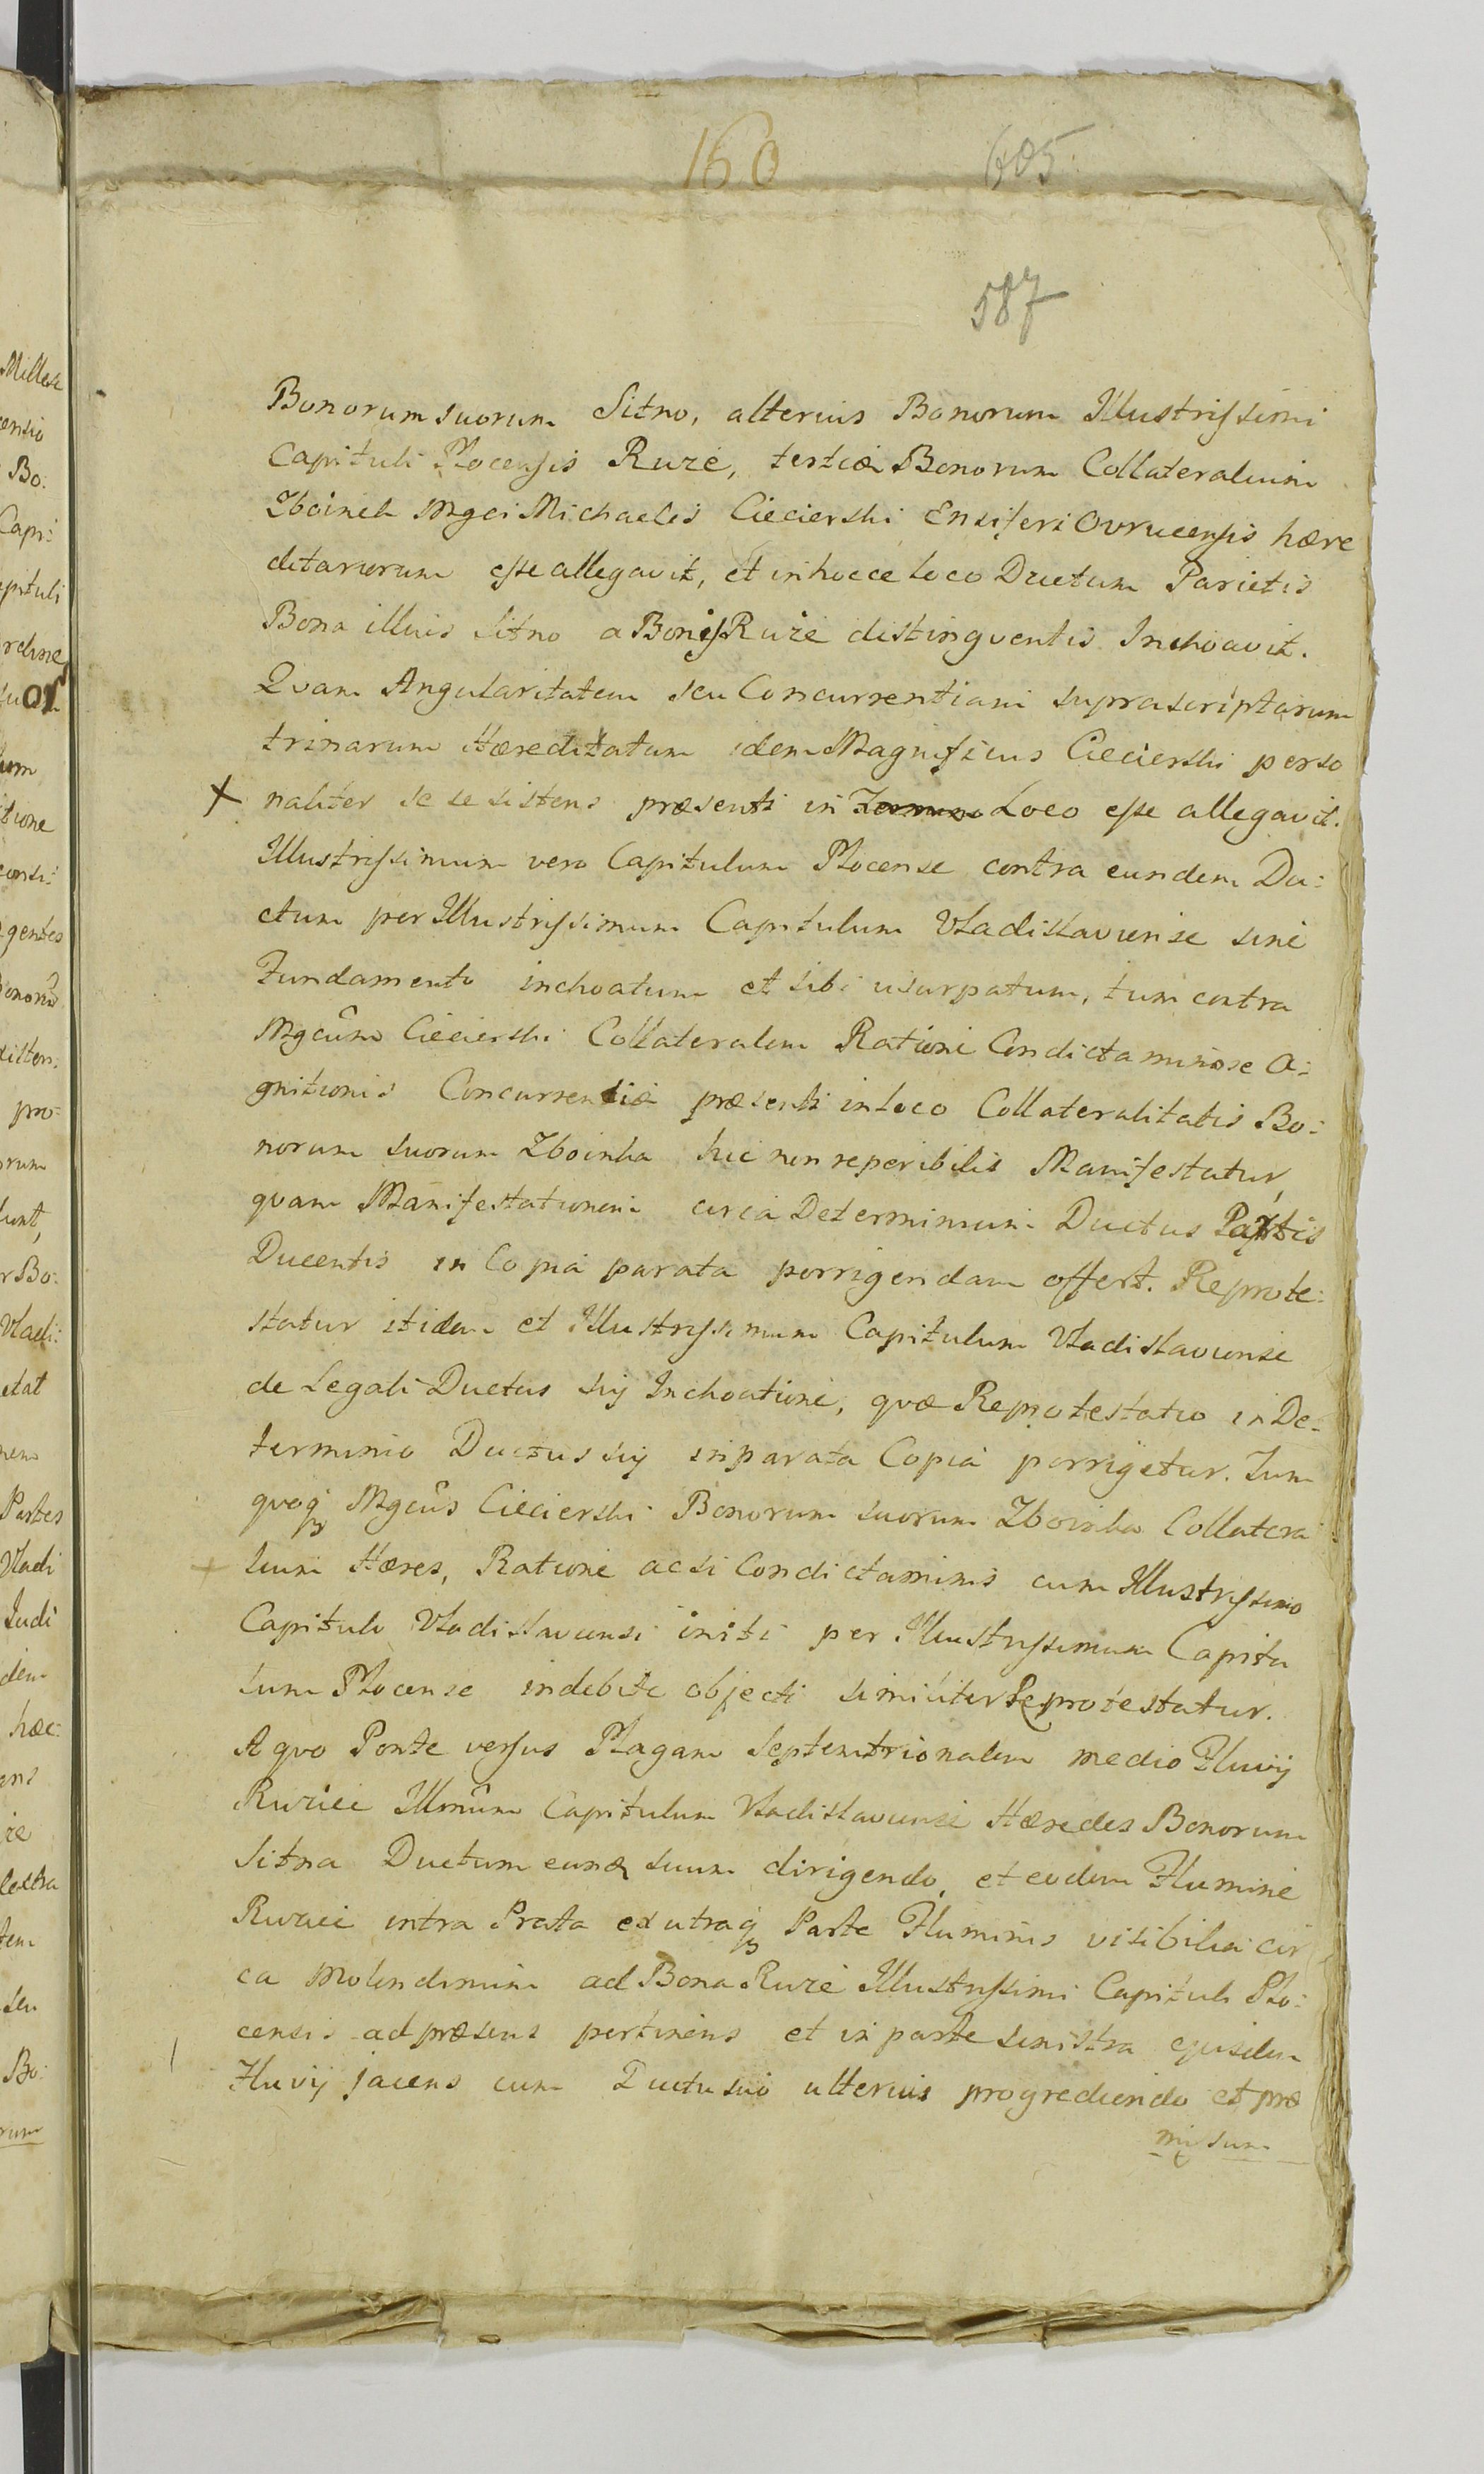 160
605
587
Bonorum suorum Sitno, alterius Bonorum Illustrissimi
Capituli Plocensis Ruże, tertiæ Bonorum Collateralium
Zboinek Mgci Michaelis Ciecierski Ensiferi Ovrucensis hære
ditariorum esse allegavit, et in hocce Loco Ductum Parietis
Bona illius Sitno a Bonis Ruże distingventis Inchoavit.
Qvam Angularitatem seu Concurrentiam suprascriptarum
trinarum Hæreditatum idem Magnificus Ciecierski perso
+ naliter se se sistens præsenti in Loco esse allegavit.
Illustrissimum vero Capitulum Plocense contra eundem Du:
ctum per Illustrissimum Capitulum Vladislaviense sine
Fundamento inchoatum et sibi usurpatum, tum contra
Mgcum Ciecierski Collateralem Ratione Condictaminose A:
gnitionis Concurrentiæ præsenti in Loco Collateralitatis Bo:
norum suorum Zboinka hic non reperibilis Manifestatur,
qvam Manifestationem circa Determinium Ductus Partis
Ducentis in Copia parata porrigendam offert. Reprote:
statur itidem et Illustrissimum Capitulum Vladislaviense
de Legali Ductus sij Inchoatione, qvæ Reprotestatio in De:
terminio Ductus sij in parata Copia porrigetur. Tum
qvoq Mgcus Ciecierski Bonorum suorum Zboinka Collatera
+ lium Hæres, Ratione acsi Condictaminis cum Illustrissimo
Capitulo Vladislaviensi initi per Illustrissimum Capitu
lum Plocense indebite objecti similiter Reprotestatur.
A qvo Ponte versus Plagam Septemtrionalem medio Fluvij
Rwiei Illmum Capitulum Vladislaviense Hæredes Bonorum
Sitna Ductum eunq suum dirigendo, et eodem Flumine
Rwiei intra Prata ex utraq Parte Fluminis visibilia cir
ca Molendinum ad Bona Ruże Illustrissimi Capituli Plo:
censis ad præsens pertinens et in parte sinistra ejusdem
Fluvij jacens cum Ductu suo ulterius progrediendo et præ
missum